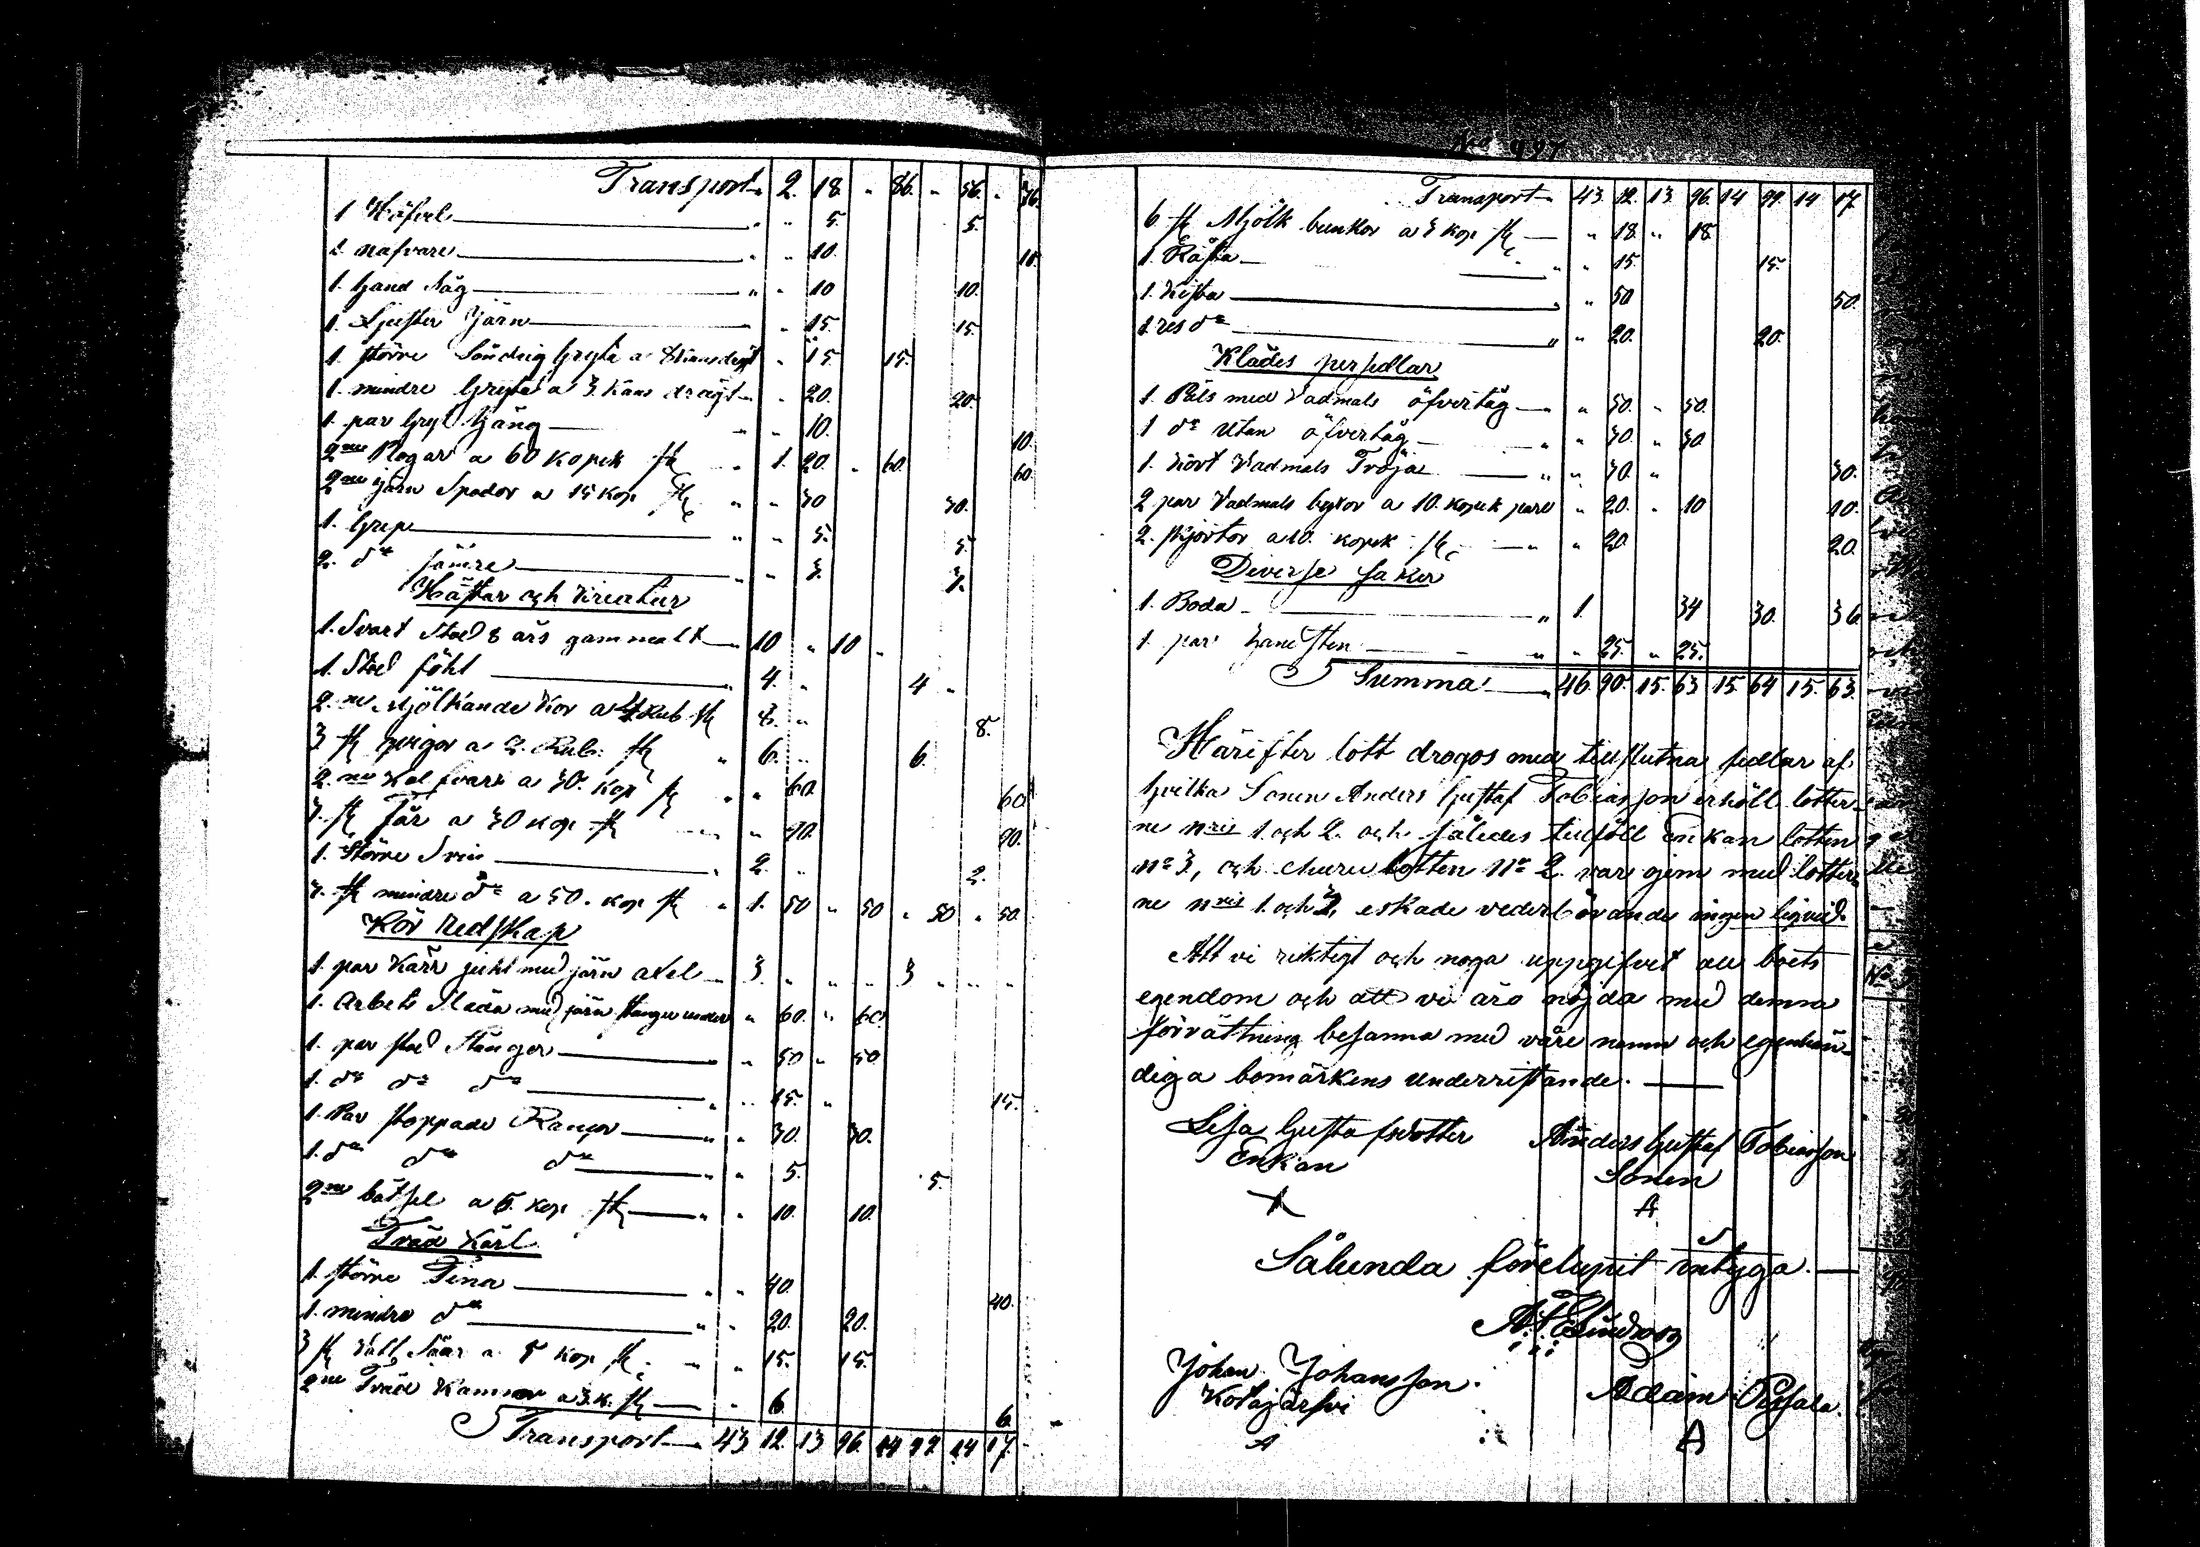 Transport 2. 18. " 86. " 56. " 76.
1 Häfvel " " 5. 5.
2 nafvare " " 10. 10.
1. hand såg " " 10 10.
1. Ljuster Järn " 15. 15.
1. större Söndrig Gryta a " 15. 15.
1. mindre Gryta a 3. kans drägt " 20. 20.
1. par Gryt hjäng " " 10. 10.
2ne Plogar a 60 kopek st " 1. 20. " 60. 60.
2ne järn Spador a 15 kop st " " 30 30.
1. Grep " " 5. 5.
2. do sämre " " 3. 3.
Hästar och Kreatur
1. Svart Sto 8 års gammalt 10 " 10 "
1. Sto föhl " 4. " 4 "
2ne Mjölkande Kor a 4 Rub. st 8. " 8.
3 st qvigor a 2. Rub. st " 6. " 6.
2ne Kalfvar a 30. kop st " " 60. 60.
3. st Får a 30 kop st " 90. 90.
1. Större Svin " 2. " 2.
3. st mindre do a 50. kop st " 1. 50 " 50 " 50 " 50.
Kör redskap
1. par Kärr hjuhl med järn axel 3 " " " 3 " " "
1. Arbets Släda med järn stänger under " 60. " 60.
1. par Stänger " 50 " 50
1. do do do " " 15. " 15.
1. Par stoppade Rangor " " 30. 30.
1. do do do " " 5. 5.
2ne bätsel a 5. kop. st " " 10. 10.
Träd Kärl
1. större Tina " " 40. 40.
1. mindre do " " 20. 20.
3 st Vatt. Såar a 5 kop st " " 15. 15.
2ne Träd Kannor a 3 k. st " 6 6.
Transport 43 12. 13 96. 14 92 14 17.
No 997
Transport 43. 12. 13. 96. 14 92. 14 17.
6 st Mjölk bunkor a 3 kop st " 18. " 18.
1. Råka " " 15. 15.
1. Kista " " 50 50.
1. res do " " 20. 20.
Klädes persedlar
1. Päls med Vadmals öfvertåg " " 50. " 50.
1 do utan öfvertåg " 30. " 30
1. kort Vadmals Tröja " " 30. " 30.
2 par Vadmals byxor a 10. kopek pare " 20. " 10 10.
2. skjortor a 10. kopek st " " 20. 20.
Diverse saker
1. Boda " 1. 34 30. 36
1. par hand sten " " 25. " 25.
Summa " 46. 90. 15. 63 15. 64 15. 63.
Härefter lott drogos med tillslutna sedlar af
hvilka Sonen Anders Gustaf Tobiasson erhöll lotter-
ne nris 1. och 2. och således tillföll Enkan lotten
No 3, och churu lotten No 2. var gem med lotter-
ne nris 1. och 3, eskade vederbörande ingen liqvid.
Att vi riktigt och noga uppgifvit all boets
egendom och att vi äro nöjda med denna
förrättning besanna med våre namn och egenhän-
diga bomärkens underristande.
Lisa Gustafsdotter Anders Gustaf Tobiasson
Enkan Sonen
X A
Sålunda förelupit intyga.
Johan Johansson. Adam
Kotajärfvi
A A